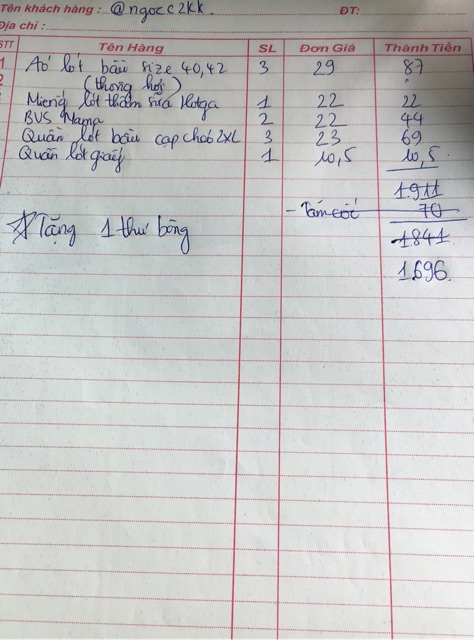 Tên khách hàng: @ngocc2kk. ĐT:
Địa chỉ:
STT Tên Hàng SL Đơn Giá Thành Tiền
1 Áo lót bầu size 40,42 3 29 87
2 (thông hơi)
Miếng lót thấm sữa Hotga 1 22 22
BVS Mama 2 22 44
Quần lót bầu cạp 2XL 3 23 69
Quần lót giấy 1 10,5 10,5
1911
- Tắm cốt 70
1841
1696
Tặng 1 thú bông